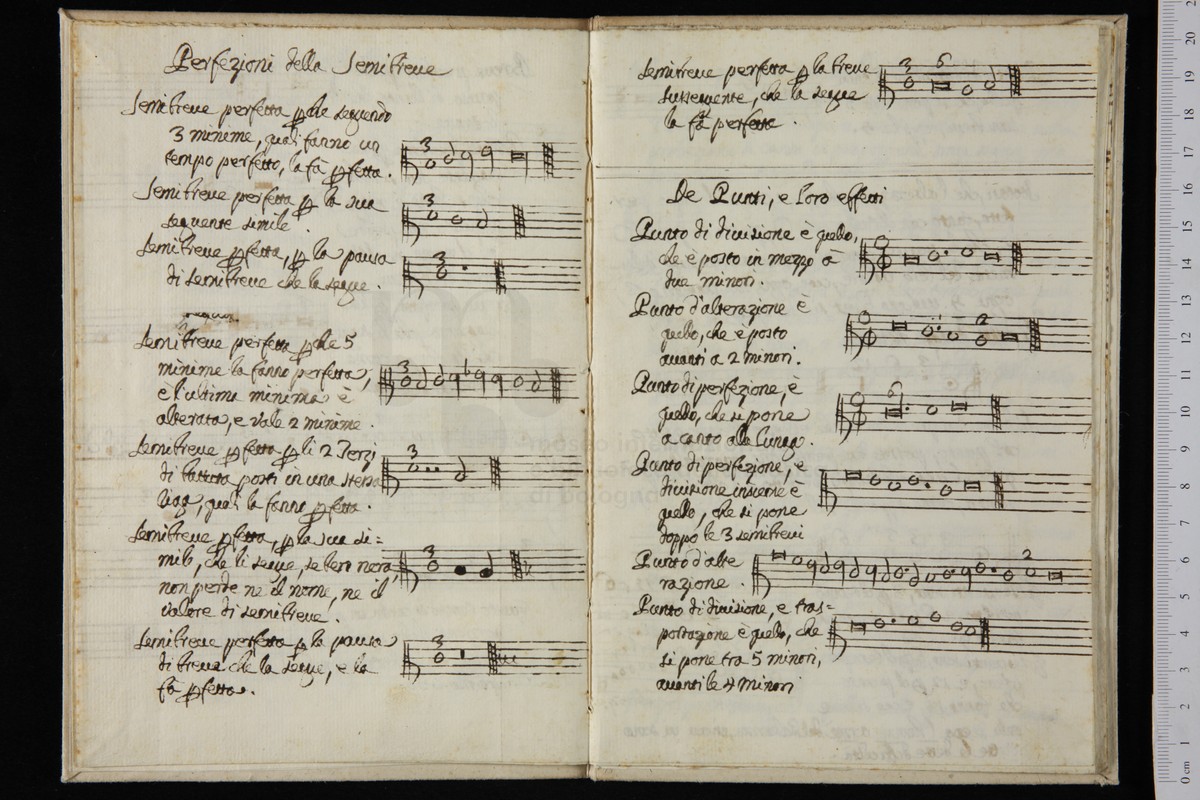 Perfezioni della Semibreue
Semibreue perfetta p che seguendo
3 minime, quali fanno un
tempo perfetto, la fà pfetta.
Semibreue perfetta p la sua
seguente simile.
Semibreue pfetta, p la pausa
di semibreue che la segue.
Semibreue perfetta p che 5
minime la fanno perfetta,
e l'ultima minima è
alterata, e vale 2 minime.
Semibreue pfetta p li 2 Terzi
di battuta posti in una stessa
riga, quali la fanno pfetta.
Semibreue pfetta, p la sua si=
mile, che li segue, se ben nera
non perde ne il nome, ne il
valore di semibreue.
Semibreue perfetta p la pausa
di breue che la segue, e la
fà pfetta.
Semibreue perfetta p la breue
sussequente, che la segue
la fà perfetta.
De Punti, e loro effetti
Punto di diuisione è quello,
che è posto in mezzo a
due minori.
Punto d'alterazione è
quello, che è posto
auanti a 2 minori.
Punto di perfezione, è
quello, che si pone
a canto alla lunga.
Punto di perfezione, e
diuisione insieme è
quello, che si pone
doppo le 3 semibreui
Punto d'alte
razione.
Punto di diuisione, e tras=
portazione è quello, che
si pone tra 5 minori,
auanti le 4 minori
0 cm 1 2 3 4 5 6 7 8 9 10 11 12 13 14 15 16 17 18 19 20